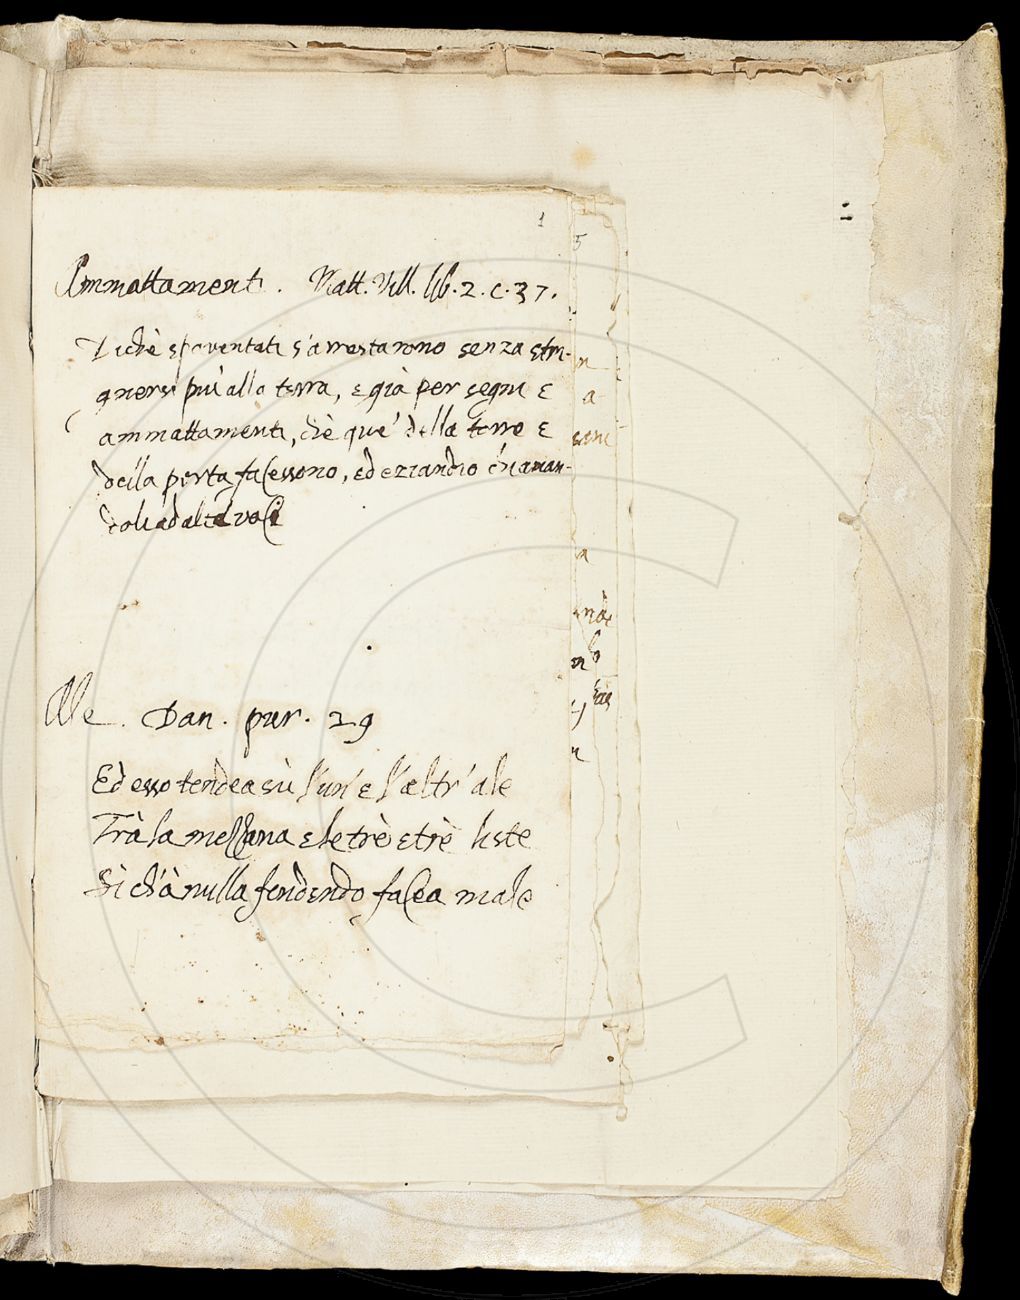 1
5
Ammattamenti. Matt. Vill. lib. 2. c. 37.
Di chè spaventati s'arrestarono senza stri-
gnersi piu' alla terra, e già per segni e
ammattamenti, chè que' della torre e
della porta facessono, ed eziandio chiaman-
doli ad alte voci
Ale. Dan. pur. 29
Ed esso tendea sù l'un' e l'altr' ale
Trà la mezzana e le trè e trè liste
Sì ch'à nulla fendendo facea male